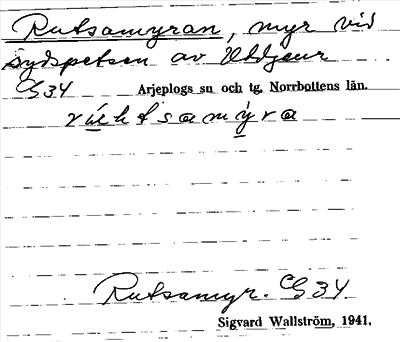 Rutsamyran, myr vid
sydspetsen av Uddjaur
C 34 Arjeplogs sn och tg, Norrbottens län.
Rutsamyr. C 34.
Sigvard Wallström, 1941.